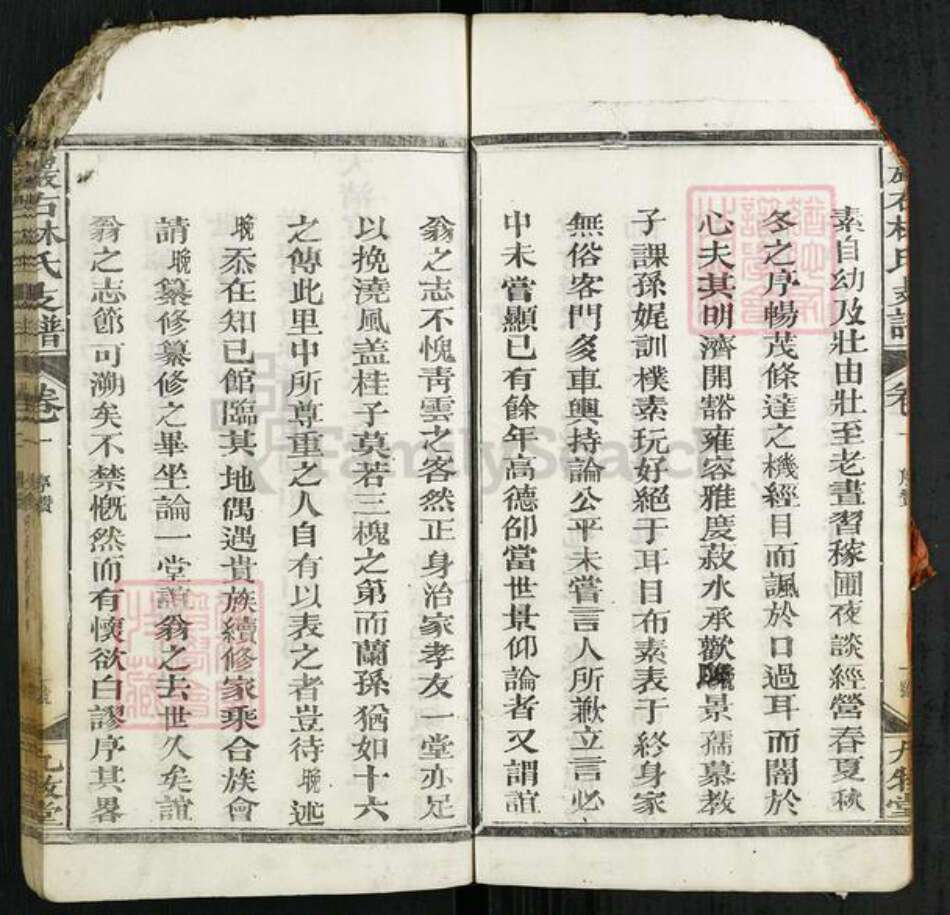 素自幼及壯由壯至老晝習稼圃夜談經營春夏秋
冬之序暢茂條達之機經目而諷於口過耳而闇於
心夫其明濟開豁雍容雅度菽水承歡 景孺慕教
子課孫娓訓樸素玩好絕于耳目布素表于終身家
無俗客門多車輿持論公平未嘗言人所歉立言必
中未嘗顯已有餘年高德卲當世景仰論者又謂誼
翁之志不愧靑雲之客然正身治家孝友一堂亦足
以挽澆風盖桂子莫若三槐之第而蘭孫猶如十六
之傳此里中所尊重之人自有以表之者豈待晩述
晩忝在知已館臨其地偶遇貴族續修家乘合族會
請晩纂修纂修之畢坐論一堂誼翁之去世久矣誼
翁之志節可溯矣不禁慨然而有懷欲白謬序其畧
巖石林氏支譜 卷一 序贊 九牧堂
石林氏支譜 卷一 九牧堂
FamilySearch